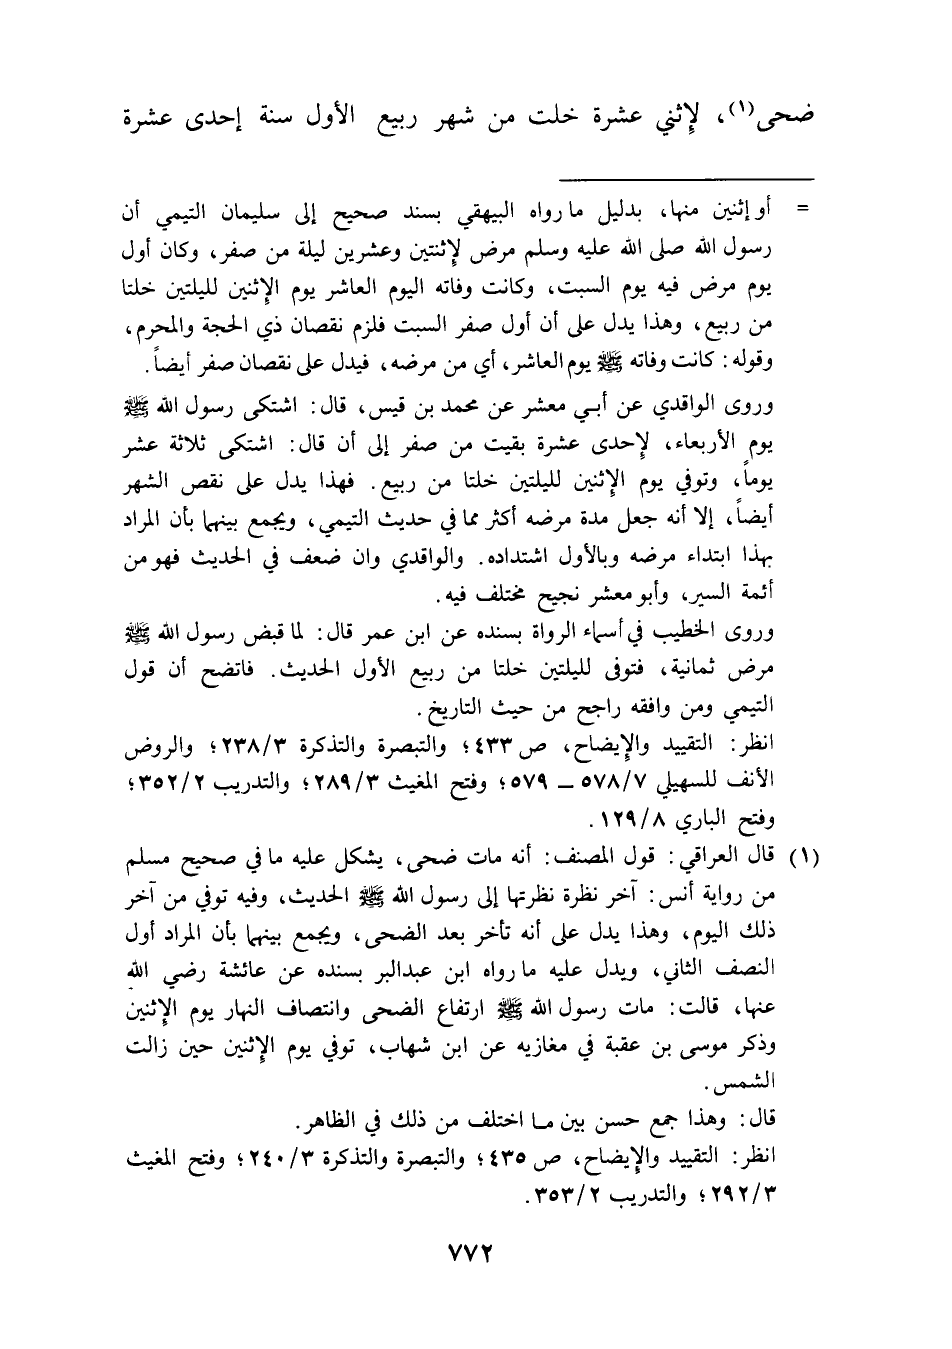 ضحى(١)، لإثني عشرة خلت من شهر ربيع الأول سنة إحدى عشرة
= أو إثنين منها، بدليل ما رواه البيهقي بسند صحيح إلى سليمان التيمي أن
رسول الله صلى الله عليه وسلم مرض لإثنتين وعشرين ليلة من صفر، وكان أول
يوم مرض فيه يوم السبت، وكانت وفاته اليوم العاشر يوم الإثنين لليلتين خلتا
من ربيع، وهذا يدل على أن أول صفر السبت فلزم نقصان ذي الحجة والمحرم،
وقوله: كانت وفاته ﷺ يوم العاشر، أي من مرضه، فيدل على نقصان صفر أيضاً.
وروى الواقدي عن أبي معشر عن محمد بن قيس، قال: اشتكى رسول الله ﷺ
يوم الأربعاء، لإحدى عشرة بقيت من صفر إلى أن قال: اشتكى ثلاثة عشر
يوماً، وتوفي يوم الإثنين لليلتين خلتا من ربيع. فهذا يدل على نقص الشهر
أيضاً، إلا أنه جعل مدة مرضه أكثر مما في حديث التيمي، ويجمع بينهما بأن المراد
بهذا ابتداء مرضه وبالأول اشتداده. والواقدي وان ضعف في الحديث فهو من
أئمة السير، وأبو معشر نجيح مختلف فيه.
وروى الخطيب في أسماء الرواة بسنده عن ابن عمر قال: لما قبض رسول الله ﷺ
مرض ثمانية، فتوفى لليلتين خلتا من ربيع الأول الحديث. فاتضح أن قول
التيمي ومن وافقه راجح من حيث التاريخ.
انظر: التقييد والإيضاح، ص ٤٣٣؛ والتبصرة والتذكرة ٢٣٨/٣؛ والروض
الأنف للسهيلي ٥٧٨/٧ ــ ٥٧٩؛ وفتح المغيث ٢٨٩/٣؛ والتدريب ٣٥٢/٢؛
وفتح الباري ١٢٩/٨.
(١) قال العراقي: قول المصنف: أنه مات ضحى، يشكل عليه ما في صحيح مسلم
من رواية أنس: آخر نظرة نظرتها إلى رسول الله ﷺ الحديث، وفيه توفي من آخر
ذلك اليوم، وهذا يدل على أنه تأخر بعد الضحى، ويجمع بينهما بأن المراد أول
النصف الثاني، ويدل عليه ما رواه ابن عبدالبر بسنده عن عائشة رضي الله
عنها، قالت: مات رسول الله ﷺ ارتفاع الضحى وانتصاف النهار يوم الإثنين
وذكر موسى بن عقبة في مغازيه عن ابن شهاب، توفي يوم الإثنين حين زالت
الشمس.
قال: وهذا جمع حسن بين ما اختلف من ذلك في الظاهر.
انظر: التقييد والإيضاح، ص ٤٣٥؛ والتبصرة والتذكرة ٢٤٠/٣؛ وفتح المغيث
٢٩٢/٣؛ والتدريب ٣٥٣/٢.
٧٧٢